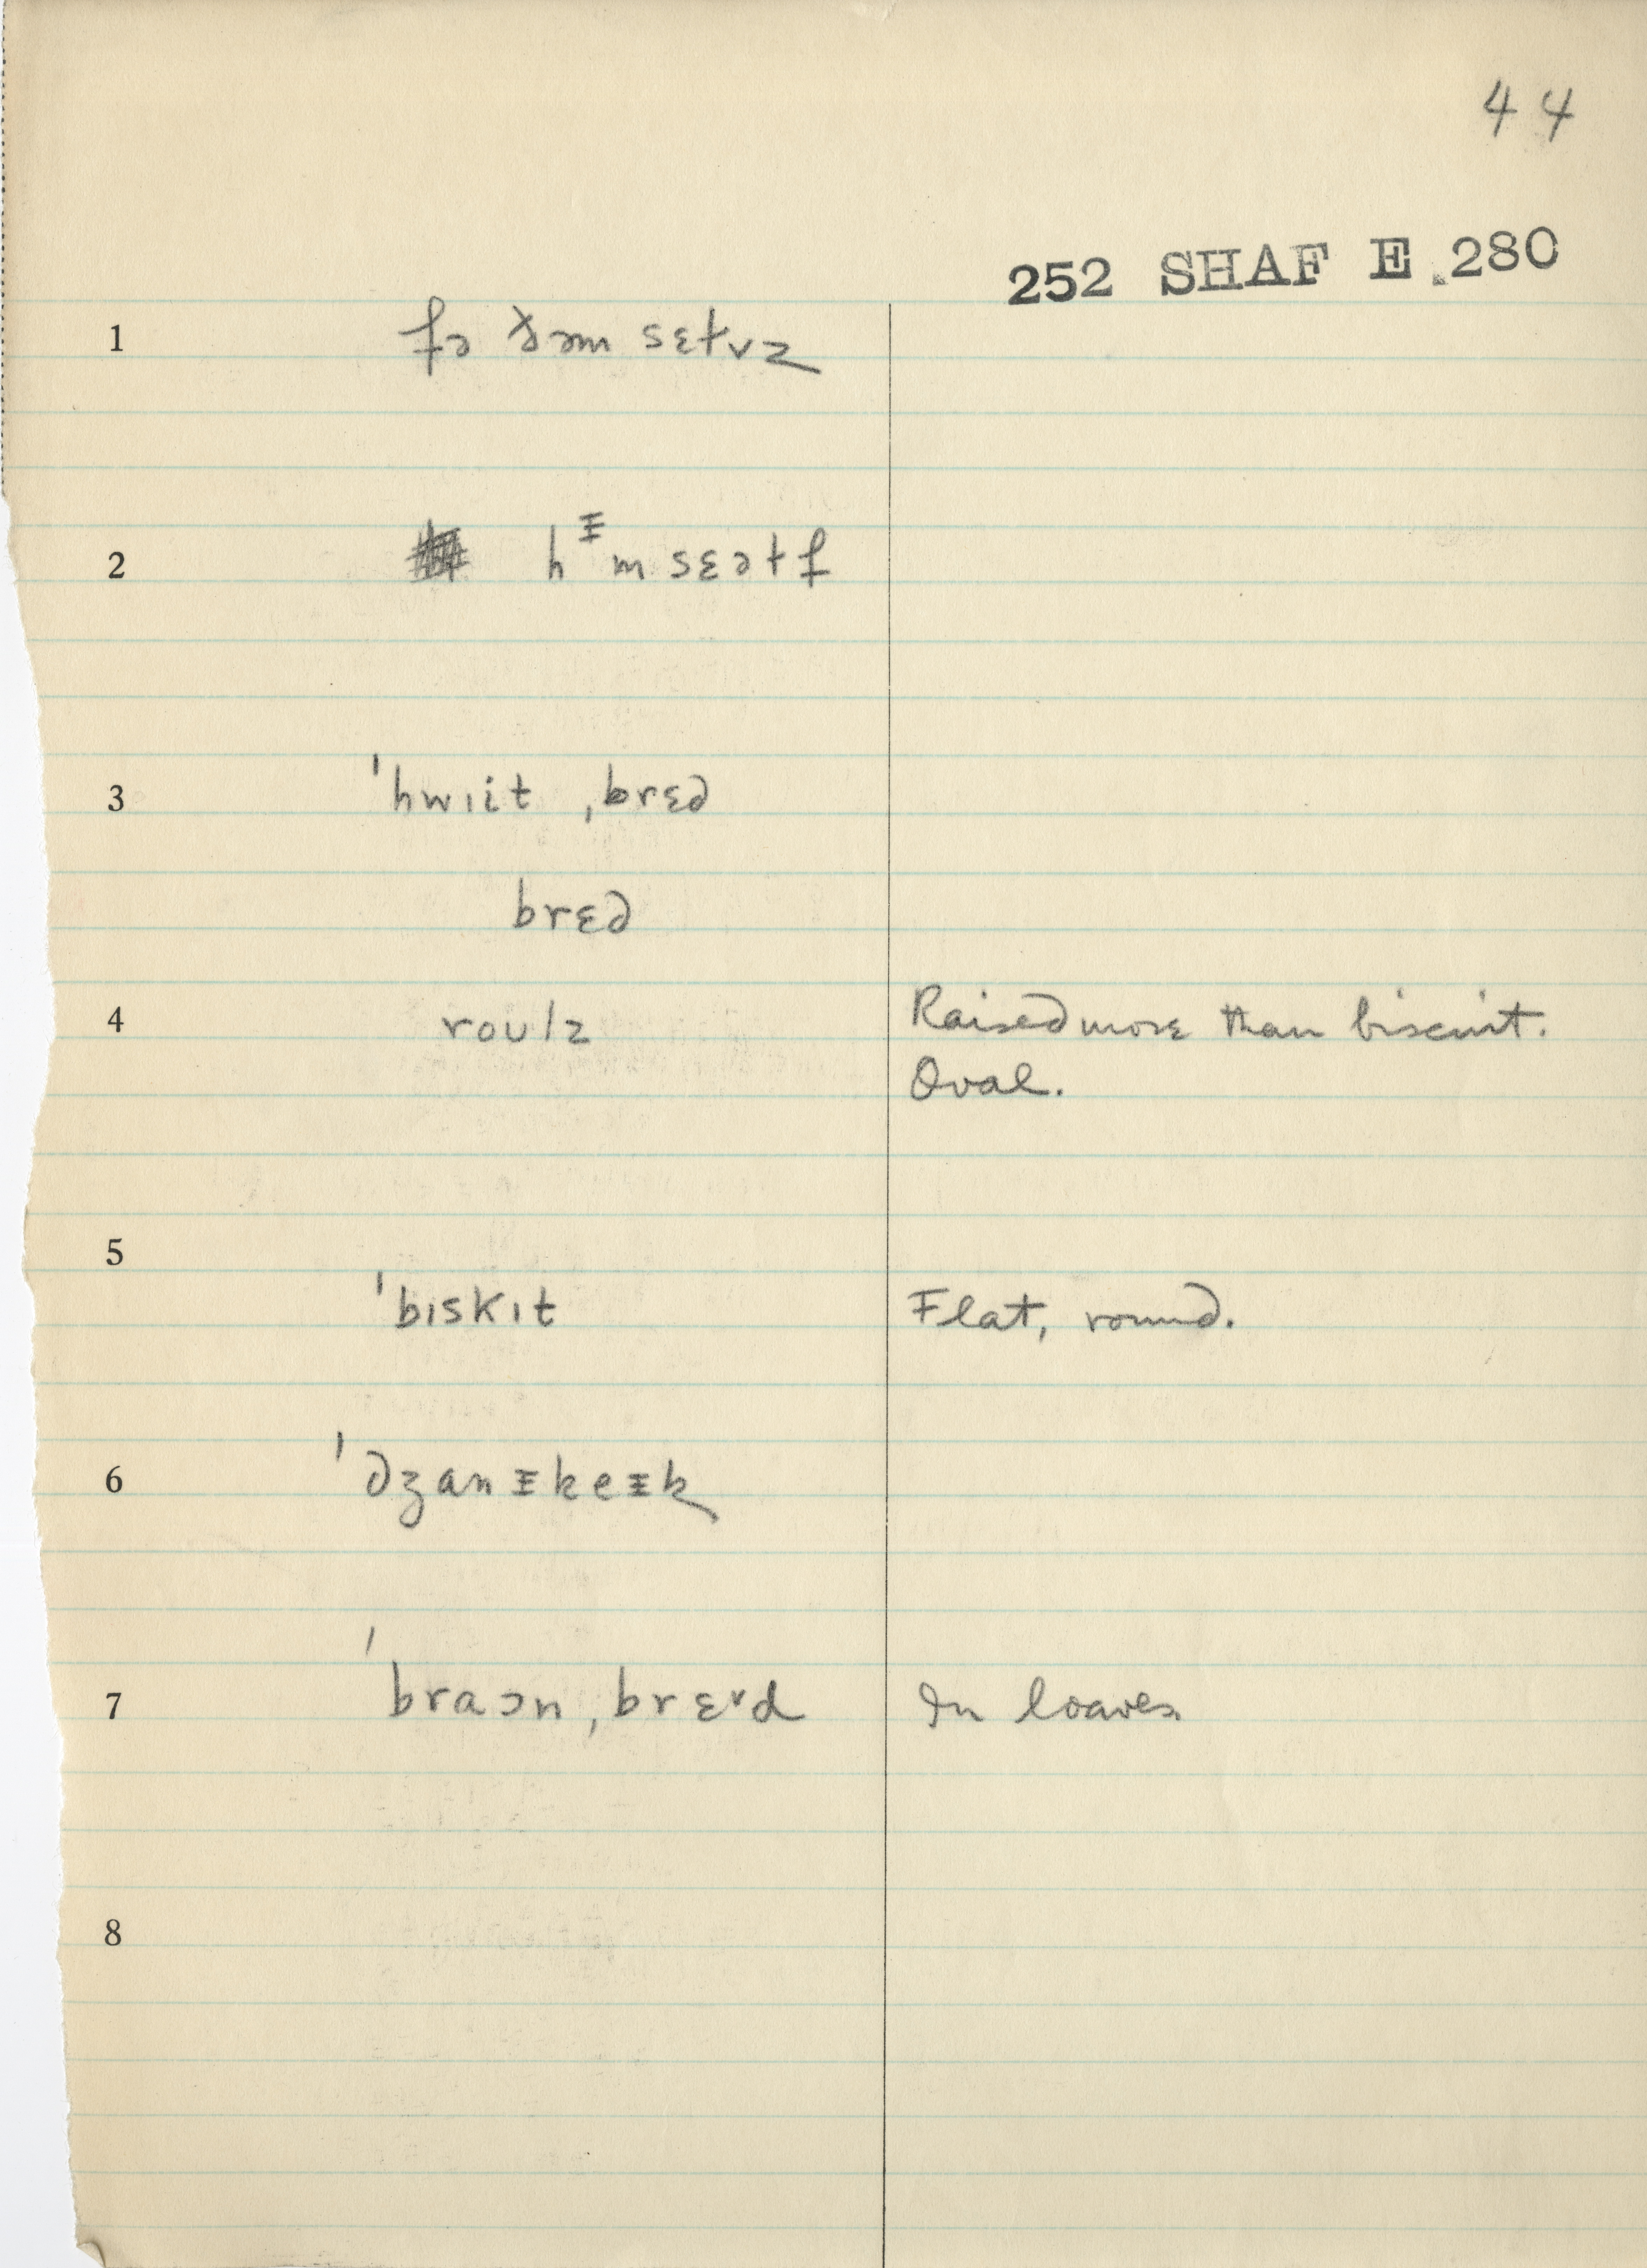 44
252 SHAF E.280
1 fə ðəm sɛtvz
2 hᵻm sɛətf
3 ˈhwɪit ˌbrɛd
brɛd
4 roulz Raised more than biscuit.
Oval.
5
ˈbɪskɪt Flat, round.
6 ˈdʒanᵻkeᵻk
7 ˈbraɔn ˌbrɛᵛd In loaves
8